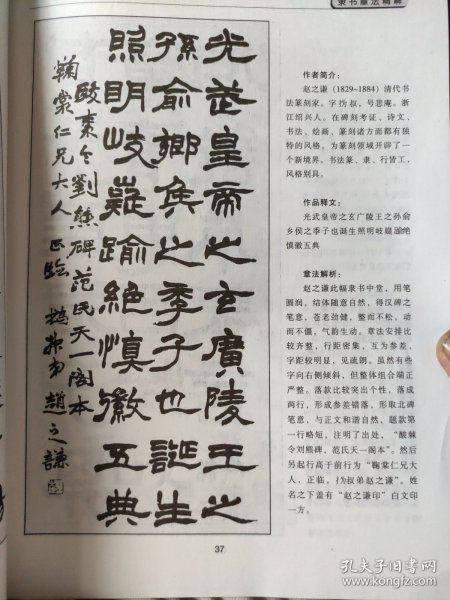 隶书章法精解
光武皇帝之玄廣陵王之
孫俞鄉侯之季子也誕生
照明岐嶷踰絕慎徽五典
酸棗令劉熊碑范氏天一閣本
鞠裳仁兄大人正臨 撝叔弟趙之謙
作者简介：
赵之谦（1829~1884）清代书
法篆刻家。字㧑叔，号悲庵。浙
江绍兴人。在碑刻考证、诗文、
书法、绘画、篆刻诸方面都有独
特的风格，为篆刻领域开辟了一
个新境界，书法篆、隶、行皆工，
风格别具。
作品释文：
光武皇帝之玄广陵王之孙俞
乡侯之季子也诞生照明岐嶷踰绝
慎徽五典
章法解析：
赵之谦此幅隶书中堂，用笔
圆润，结体随意自然，得汉碑之
笔意，苍老劲健，整而不松，动
而不僵，气韵生动。章法安排比
较齐整，行距密集，互为参差，
字距较明显，见疏朗。虽然有些
字向右侧倾斜，但整体组合端正
严整。落款比较突出个性，落成
两行，形成参差错落，形取北碑
笔意，与正文和谐自然，题款第
一行略短，注明了出处，“酸棘
令刘熊碑，范氏天一阁本”。然后
另起行高于前行为“鞠棠仁兄大
人，正临，㧑叔弟赵之谦”。姓
名之下盖有“赵之谦印”白文印
一方。
37
孔夫子旧书网
www.kongfz.com